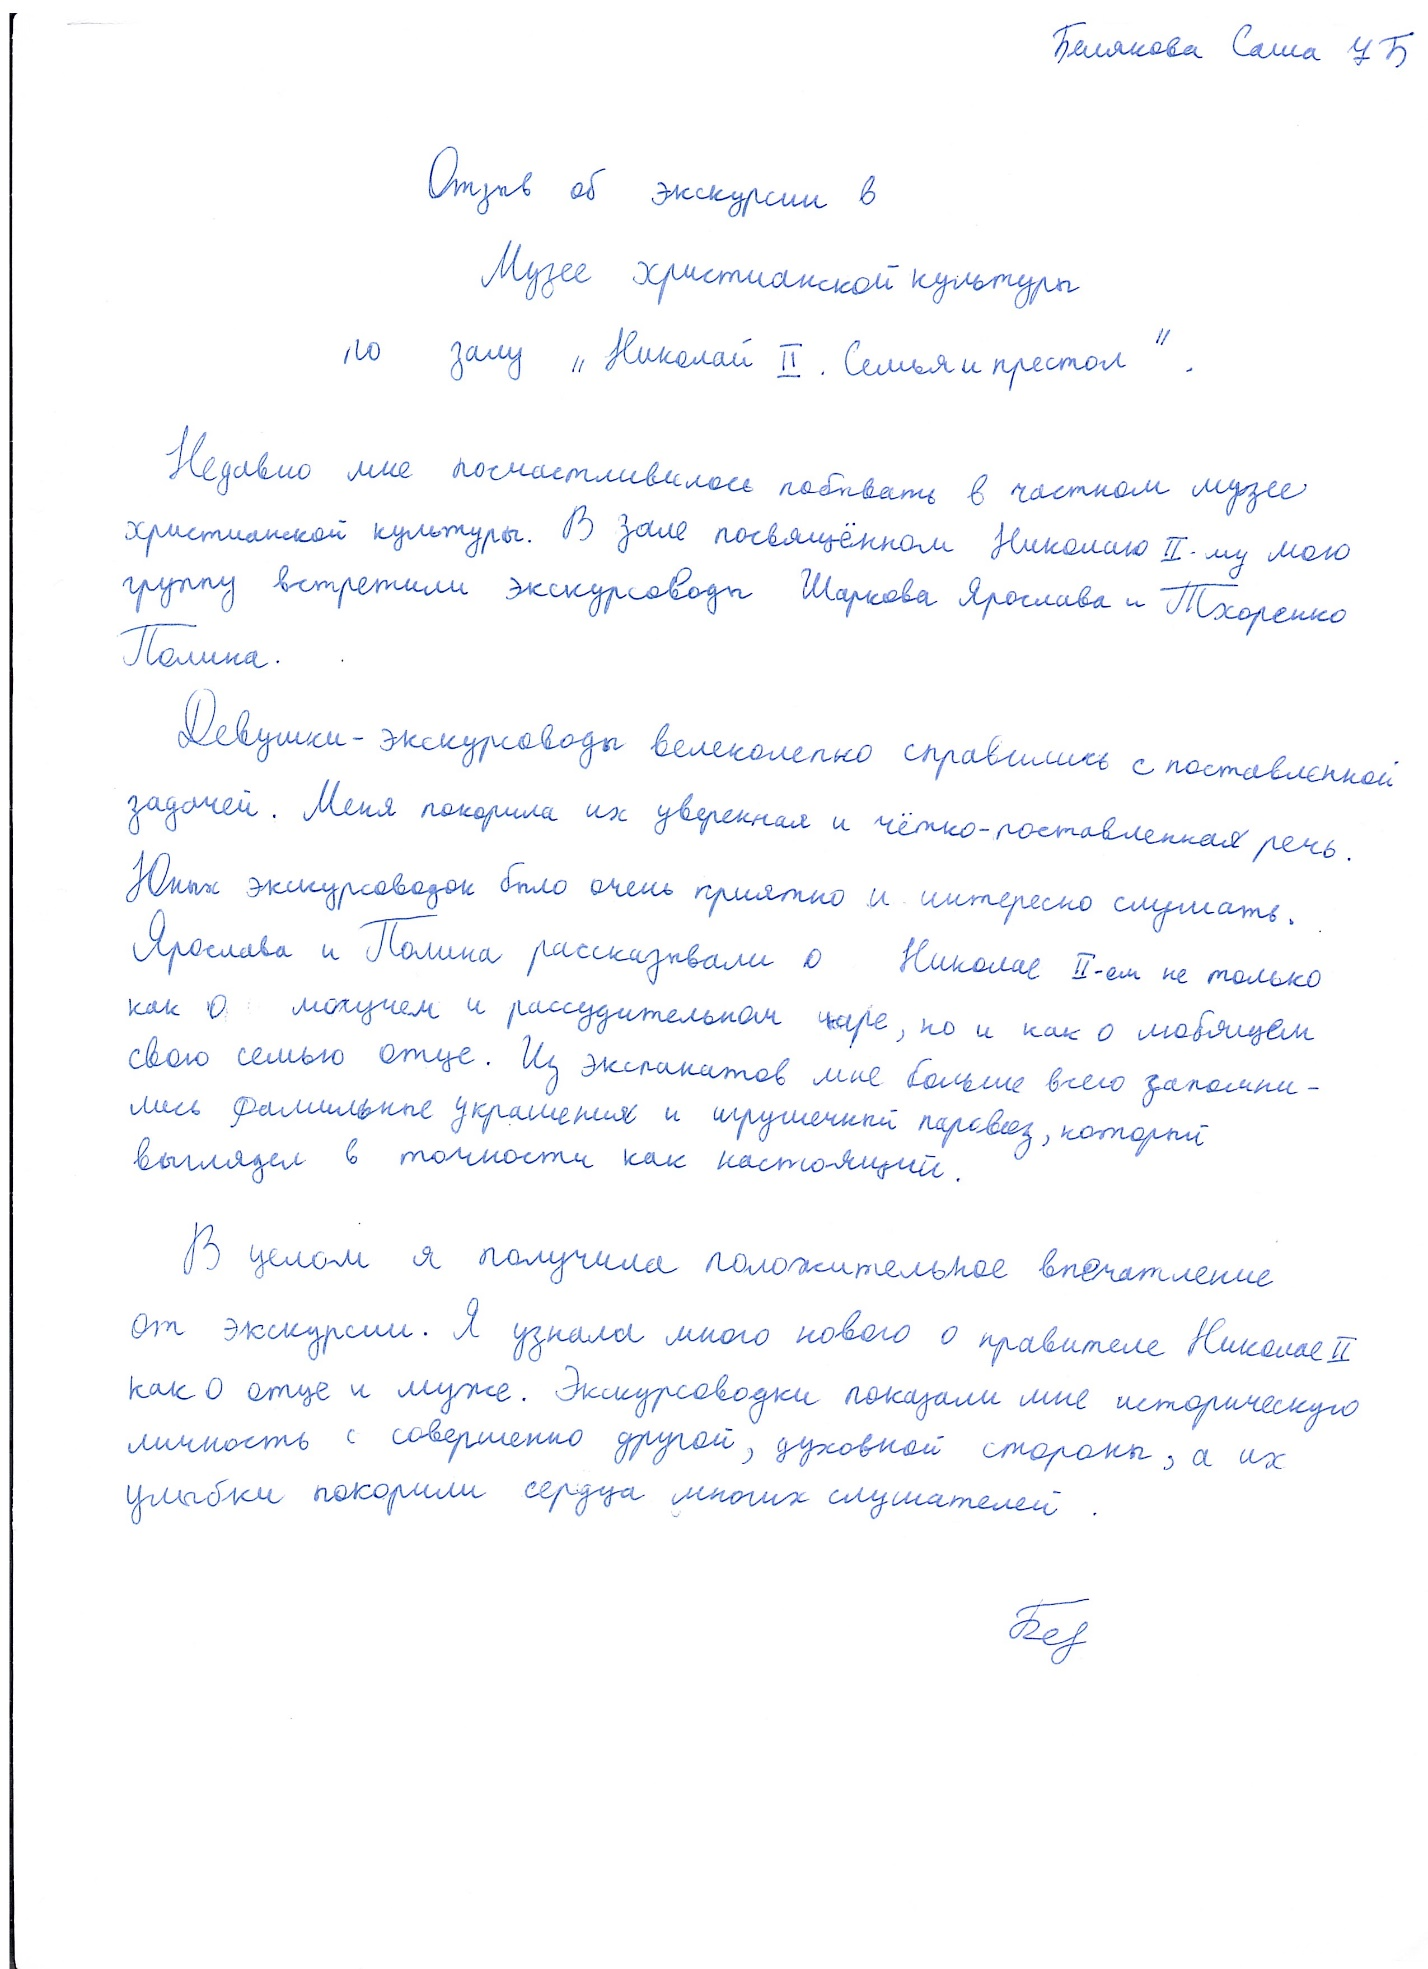 Белякова Саша 7Б
Отзыв об экскурсии в
Музее христианской культуры
по залу „Николай II. Семья и престол".
Недавно мне посчастливилось побывать в частном музее
христианской культуры. В зале посвящённом Николаю II-му мою
группу встретили экскурсоводы Шаркова Ярослава и Тхоренко
Полина.
Девушки-экскурсоводы велеколепно справились с поставленной
задачей. Меня покорила их уверенная и чётко-поставленная речь.
Юных экскурсоводок было очень приятно и интересно слушать.
Ярослава и Полина рассказывали о Николае II-ом не только
как о могучем и рассудительном царе, но и как о любящем
свою семью отце. Из экспанатов мне больше всего запомни-
лись фамильные украшения и игрушечный паровоз, который
выглядел в точности как настоящий.
В целом я получила положительное впечатление
от экскурсии. Я узнала много нового о правителе Николае II
как о отце и муже. Экскурсоводки показали мне историческую
личность с совершенно другой, духовной стороны, а их
улыбки покорили сердца многих слушателей.